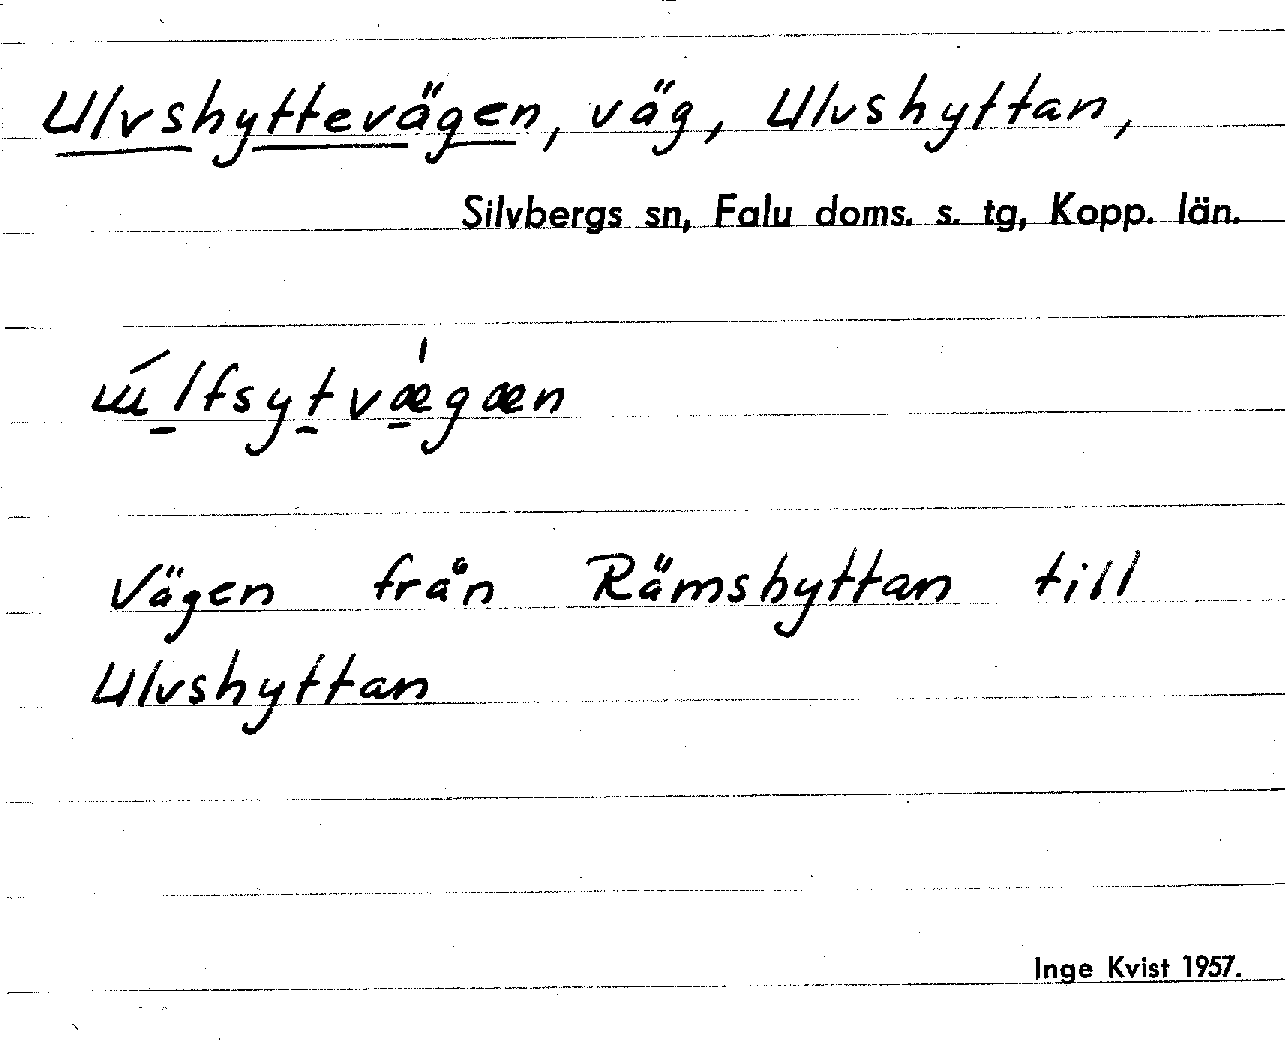 Ulvshyttevägen, väg, Ulvshyttan,
Silvbergs sn, Falu doms. s. tg, Kopp. län.
Vägen från Rämshyttan till
Ulvshyttan
Inge Kvist 1957.